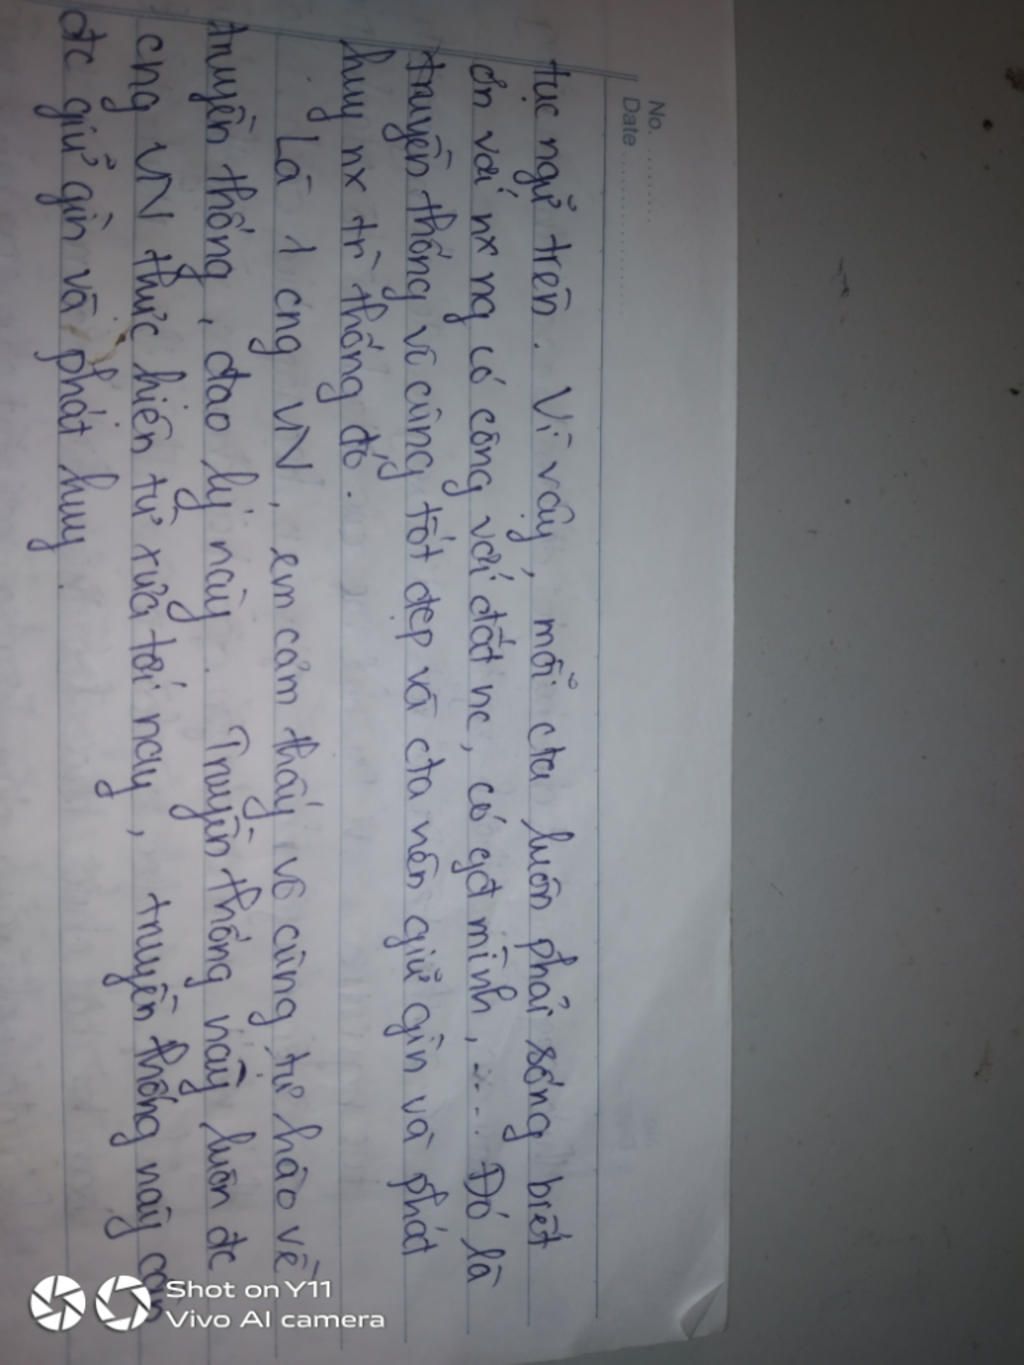 No. ...........
Date .....................
tục ngữ trên. Vì vậy, mỗi cta luôn phải sống biết
ơn với nx ng có công với đất nc, có gđ mình, .... Đó là
truyền thống vô cùng tốt đẹp và cta nên giữ gìn và phát
huy nx tr` thống đó.
Là 1 cng VN, em cảm thấy vô cùng tự hào về
truyền thống, đạo lý này. Truyền thống này luôn đc
cng VN thực hiện từ xưa tới nay, truyền thống này cần
đc giữ gìn và phát huy.
Shot on Y11
Vivo AI camera